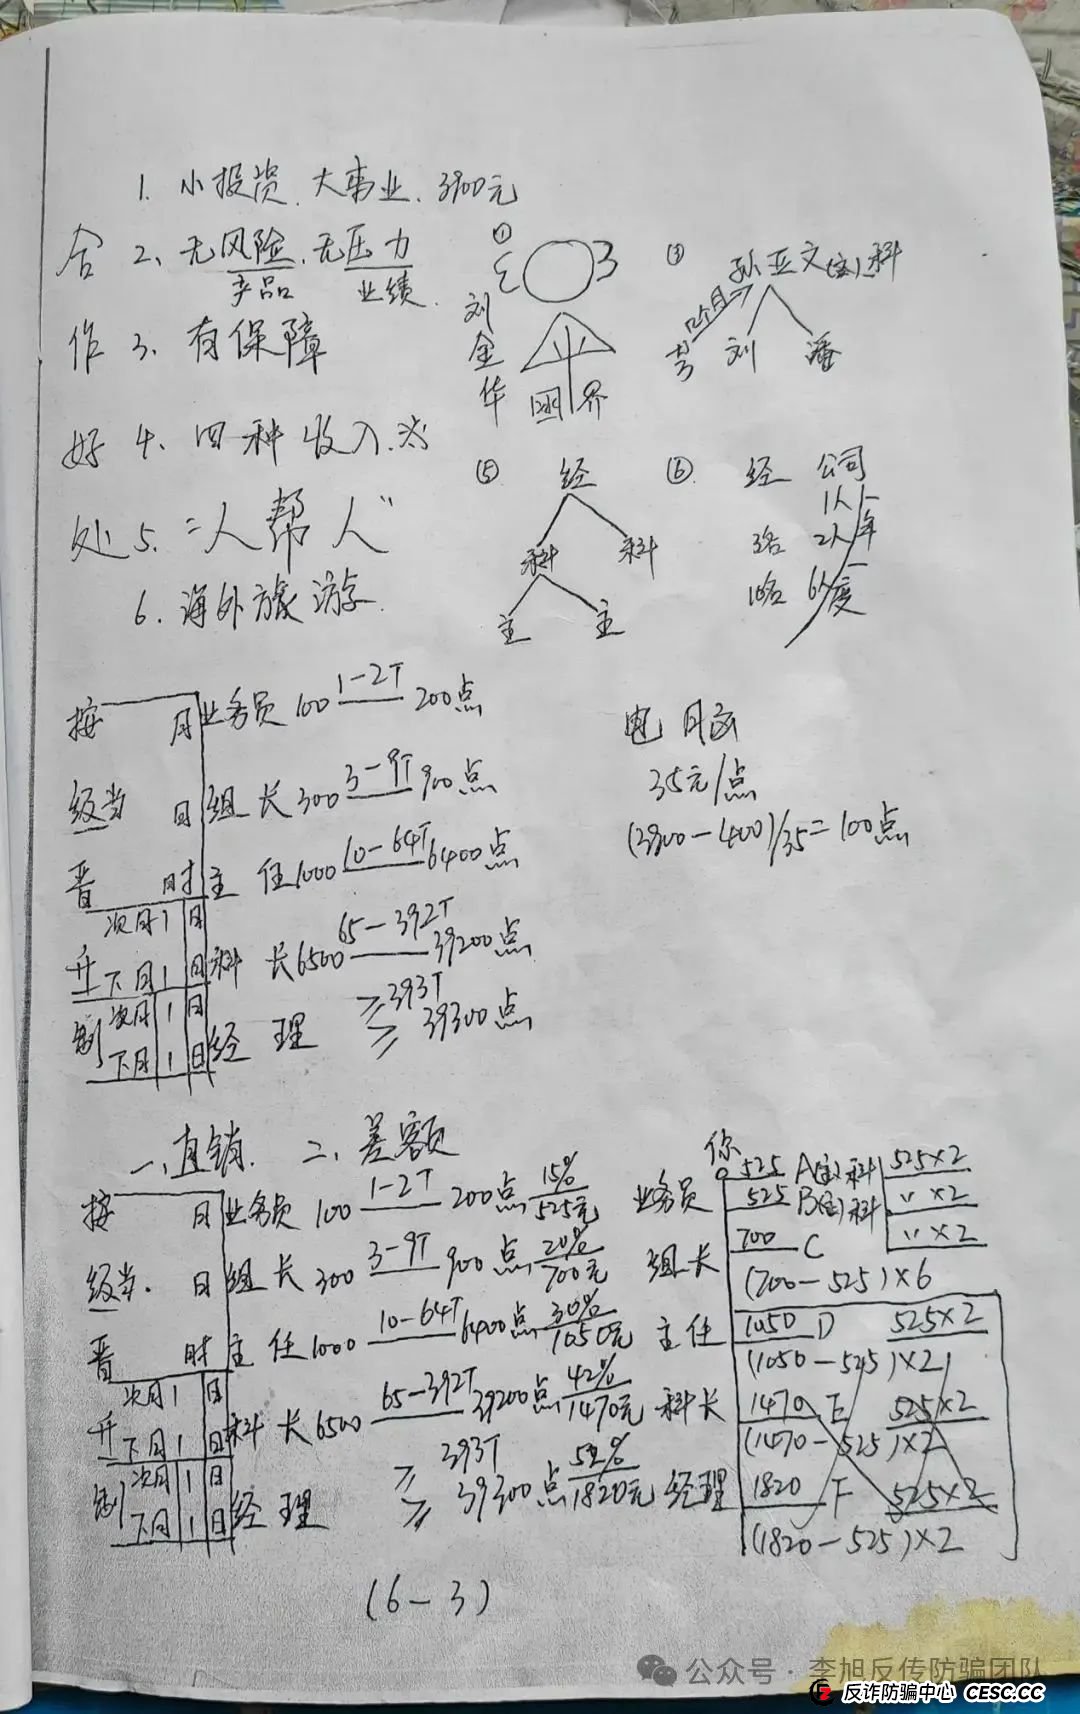 1. 小投资.大事业.3900元
合 2、无风险.无压力
产品 业绩.
作 3、有保障
好 4、四种收入.
处 5.“人帮人”
6.海外旅游.
① 3
刘金华
国 界
③ 孙亚文(主)科
12个月
刘 潘
⑤ 经
科 科
主 主
⑥ 经 公司
1人
3名 2人 年
1名 6人 度
按 月 业务员 100 1-2T 200点
级当 日 组长 300 3-9T 900点
晋 时 主任 1000 10-64T 6400点
次月1日
升 下月1日 科长 6500 65-392T 39200点
次月1日
制 下月1日 经理 ≥393T ≥39300点
35元/点
(3900-400)/35=100点
一、直销. 二、差额
按 月 业务员 100 1-2T 200点 15% 525元
级当. 日 组长 300 3-9T 900点 20% 700元
晋 时 主任 1000 10-64T 6400点 30% 1050元
次月1日
升 下月1日 科长 6500 65-392T 39200点 42% 1470元
次月1日
制 下月1日 经理 ≥393T ≥39300点 52% 1820元
你
业务员 525 A(主)科 525×2
525 B(主)科 〃×2
700 C 〃×2
组长 (700-525)×6
主任 1050 D 525×2
(1050-525)×2
科长 1470 E 525×2
(1470-525)×2
经理 1820 F 525×2
(1820-525)×2
(6-3)
公众号·李旭反传防骗团队
反诈防骗中心 CESC.CC